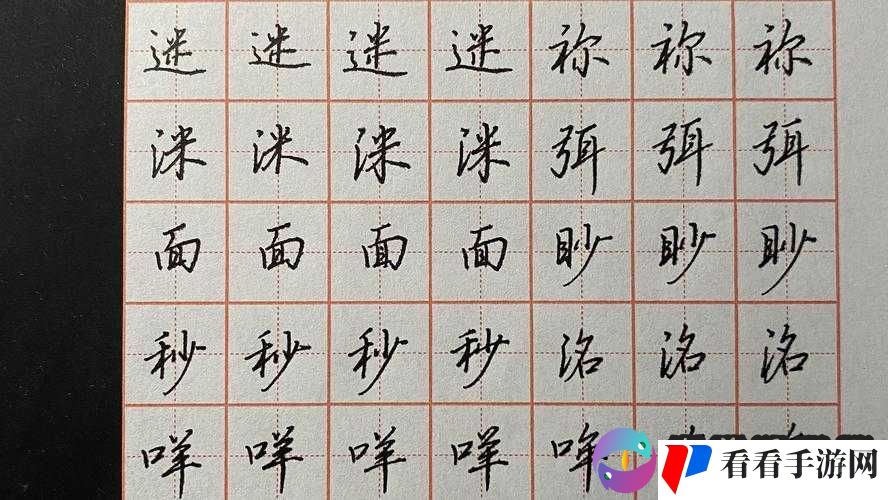 迷迷迷迷祢祢祢
洣洣洣洣弭弭弭
面面面面眇眇眇
秒秒秒秒洺洺洺
咩咩咩咩哞
看看手游网